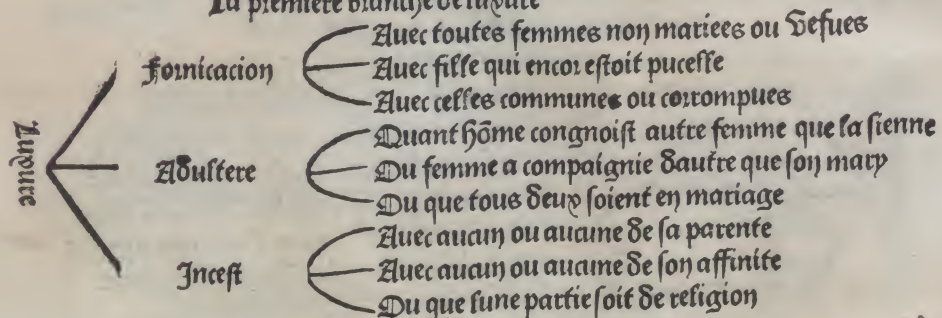 La premiere branche de luxure
Luxure
Fornicacion
Auec toutes femmes non mariees ou vefues
Auec fille qui encor estoit pucelle
Auec celles communes ou corrompues
Adultere
Quant hõme congnoist autre femme que la sienne
Ou femme a compaignie dautre que son mary
Ou que tous deux soient en mariage
Incest
Auec aucun ou aucune de sa parente
Auec aucun ou aucune de son affinite
Ou que lune partie soit de religion